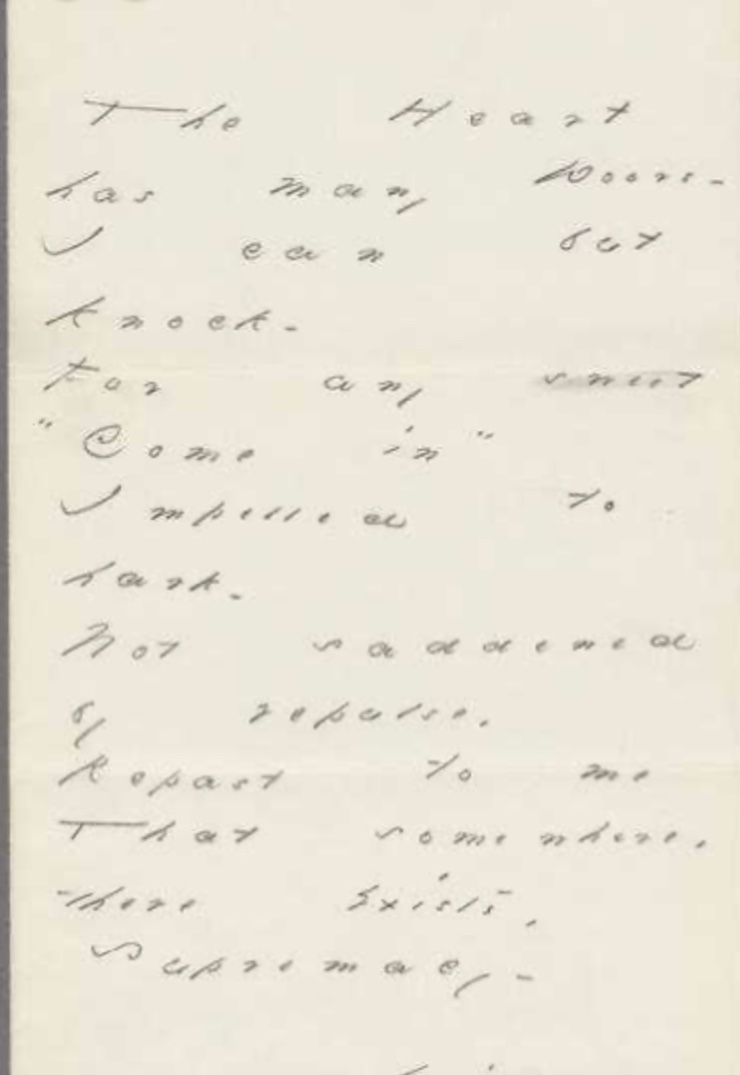 The Heart
has many Doors -
I can but
knock -
For any sweet
"Come in"
Impelled to
hark -
Not saddened
by repulse,
Repast to me
That somewhere,
there Exists,
Supremacy -